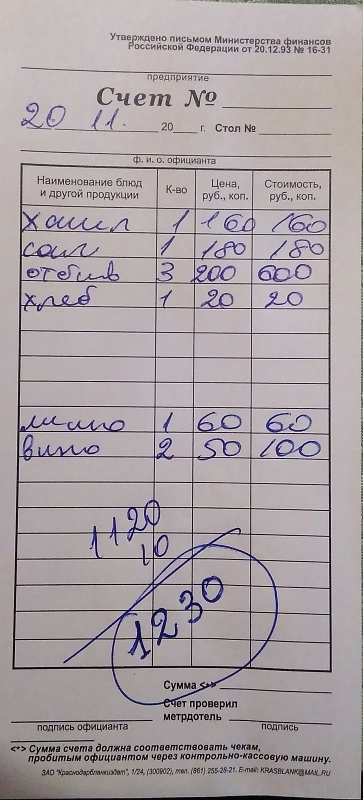 Утверждено письмом Министерства финансов
Российской Федерации от 20.12.93 № 16-31
предприятие
Счет №
20 11. 20 г. Стол №
ф. и. о. официанта
Наименование блюд и другой продукции К-во Цена, руб., коп. Стоимость, руб., коп.
1 160 160
1 180 180
отбив 3 200 600
хлеб 1 20 20
1 60 60
вино 2 50 100
1120
10
1230
Сумма <*>
Счет проверил
метрдотель
подпись официанта подпись
<*> Сумма счета должна соответствовать чекам,
пробитым официантом через контрольно-кассовую машину.
ЗАО "Краснодарбланкиздат", 1/24, (300902), тел. (861) 255-28-21. E-mail: KRASBLANK@MAIL.RU